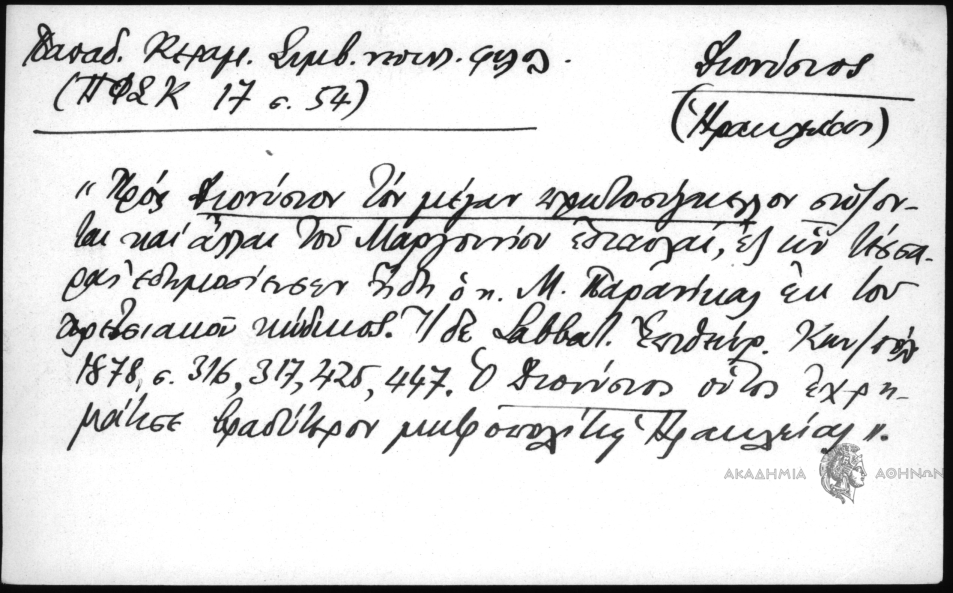 Παπαδ. Κεραμ. Συμβ. νεοελλ. φιλολ.
(ΠΦΣΚ 17 σ. 54)
Διονύσιος
(Ἡρακλείας)
"Πρός Διονύσιον τόν μέγαν πρωτοσύγκελλον σώζον-
ται καί ἄλλαι τοῦ Μαργουνίου ἐπιστολαί, ἐξ ὧν τέσσα-
ρας ἐδημοσίευσεν ἤδη ὁ κ. Μ. Παρανίκας ἐκ τοῦ
κώδικος. Ἴδε Sabbat. Ἐπιθεώρ. Κων/πόλ
1878, σ. 316, 317, 425, 447. Ὁ Διονύσιος οὗτος ἐχρη-
μάτισε βραδύτερον μητροπολίτης Ἡρακλείας".
ΑΚΑΔΗΜΙΑ ΑΘΗΝΩΝ